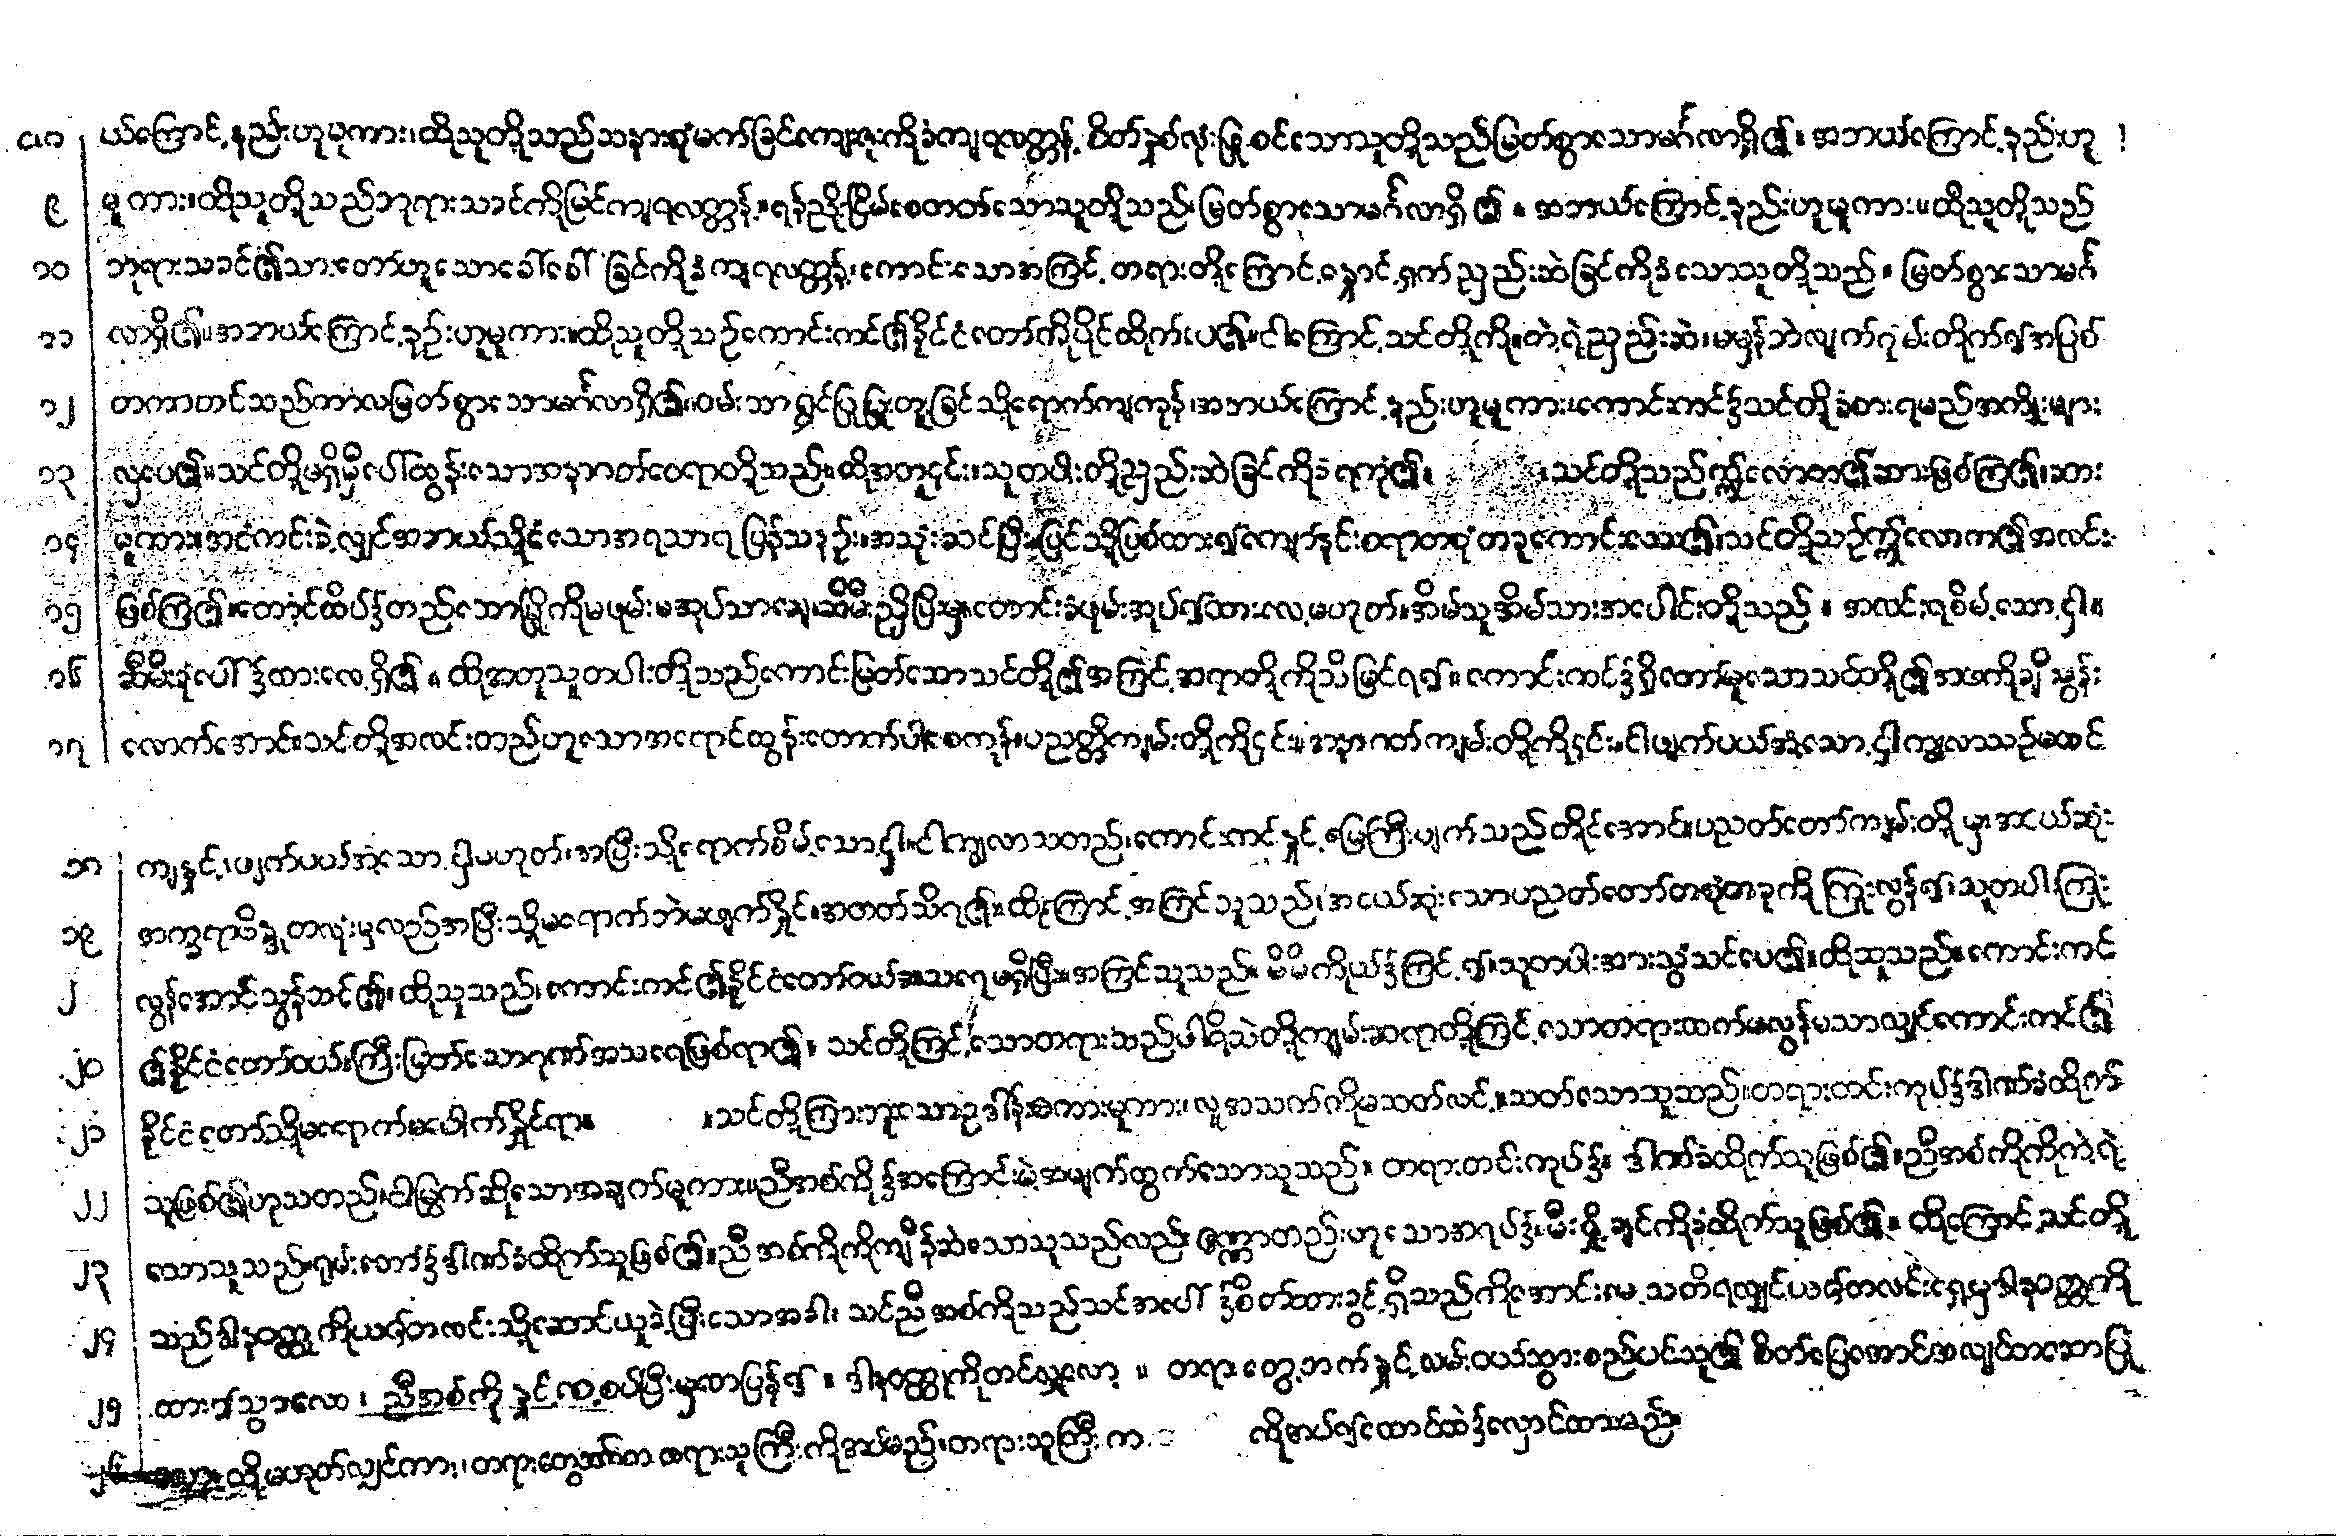 ၈ ယ်ကြောင့်နည်းဟုမုကား၊ထိုသူတို့သည်သနားစုံမက်ခြင်ကျေးဇူးကိုခံကျရလတ္တန့်စိတ်နှစ်လုံးဖြူစင်သောသူတို့သည်မြတ်စွာသောမင်္ဂလာရှိ၏။အဘယ်ကြောင့်နည်းဟု
၉ မူကား၊ထိုသူတို့သည်ဘုရားသခင်ကိုမြင်ကျရလတ္တန့်။ရန်ညိုးငြိမ်စေတတ်သောသူတို့သည်၊မြတ်စွာသောမင်္ဂလာရှိ၏။အဘယ်ကြောင့်နည်းဟူမူကား။ထိုသူတို့သည်
၁၀ ဘုရားသခင်၏သားတော်ဟူသောခေါ်ဝေါ်ခြင်ကိုခံကျရလတ္တန့်၊ကောင်းသောအကြင့်တရားတို့ကြောင့်နှောင့်ရှက်ညှည်းဆဲခြင်ကိုခံသောသူတို့သည်။မြတ်စွာသောမင်္ဂ
၁၁ လာရှိ၏။အဘယ်ကြောင့်နည်းဟူမူကား။ထိုသူတို့သည်ကောင်းကင်၏နိုင်ငံတော်ကိုပိုင်ထိုက်ပေ၏။ငါကြောင့်သင်တို့ကို။တဲ့ရဲ့ညှည်းဆဲ၊မမှန်ဘဲလျက်ဂုံမ်းတိုက်၍အပြစ်
၁၂ တကာတင်သည်ကာလမြတ်စွာသောမင်္ဂလာရှိ၏။ဝမ်းသာရွှင်ပြုမြူးတူးခြင်သို့ရောက်ကျကုန်၊အဘယ်ကြောင့်နည်းဟူမူကား၊ကောင်းကင်၌သင်တို့ခံစားရမည်အကျိုးများ
၁၃ လှပေ၏။သင်တို့မရှိမှီပေါ်ထွန်းသောအနာဂတ်ဝေရာတို့သည်။ထိုအတူ၎င်း။သူတပါးတို့ညှည်းဆဲခြင်ကိုခံရကုံ၏။ သင်တို့သည်ဤလောက၏ဆားဖြစ်ကြ၏။ဆား
၁၄ မူကား။အငံကင်းခဲ့လျှင်အဘယ်သို့ငံသောအရသာရပြန်သနည်း။အသုံးဆင်ပြီး။ပြင်သို့ပြစ်ထား၍ကျော်နင်းစရာတစုံတခုကောင်းသေး၏။သင်တို့သည်ဤလောက၏အလင်း
၁၅ ဖြစ်ကြ၏။တောင်ထိပ်၌တည်သောမြို့ကိုမဖုမ်းမအုပ်သာချေ။ဆီမီးညှိပြီးမှ။တောင်းခံဖုမ်းအုပ်၍ထားလေ့မဟုတ်။အိမ်သူအိမ်သားအပေါင်းတို့သည်။အလင်းရစိမ့်သော့ငှါ။
၁၆ ဆီမီးခုံပေါ်၌ထားလေ့ရှိ၏။ထိုအတူသူတပါးတို့သည်ကောင်းမြတ်ဆောသင်တို့၏အကြင့်အရာတို့ကိုသိမြင်ရ၍။ကောင်းကင်၌ရှိတော်မူသောသင်တို့၏အဖကိုချီးမွန်း
၁၇ လောက်အောင်။သင်တို့အလင်းတည်ဟူသောအရောင်ထွန်းတောက်ပါစေကုန်။ပညတ္တိကျမ်းတို့ကို၎င်း။အနာဂတ်ကျမ်းတို့ကို၎င်း။ငါဖျက်ပယ်အံ့သော့ငှါကျွလာသည်မထင်
၁၈ ကျနှင့်၊ဖျက်ပယ်အံ့သော့ငှါမဟုတ်၊အပြီးသို့ရောက်စိမ့်သော့ငှါ။ငါကျွလာသတည်၊ကောင်းကင်နှင့်မြေကြီးပျက်သည်တိုင်အောင်။ပညတ်တော်ကျမ်းတို့မှာအငယ်ဆုံး
၁၉ အက္ခရာဗိန္ဒုတလုံးမှလည်အပြီးသို့မရောက်ဘဲမဖျက်နှိုင်။အတတ်သိရ၏။ထို့ကြောင့်အကြင်သူသည်၊အငယ်ဆုံးသောပညတ်တော်တစုံတခုကိုကြူးလွန်၍၊သူတပါးကြူး
၂ လွန်အောင်သွန်ဘင်၏၊ထိုသူသည်၊ကောင်းကင်၏နိုင်ငံတော်ဝယ်အသရေမရှိပြီး။အကြင်သူသည်။မိမိကိုယ်၌ကြင့်၍။သူတပါးအားသွံသင်ပေ၏။ထိုသူသည်။ကောင်းကင်
၂၀ ၏နိုင်ငံတော်ဝယ်။ကြီးမြတ်သောဂုဏ်အသရေဖြစ်ရာ၏။သင်တို့ကြင့်သောတရားသည်ပါရိသဲတို့ကျမ်းဆရာတို့ကြင့်သောတရားထက်မလွန်မသာလျှင်ကောင်းကင်၏
၂၁ နိုင်ငံတော်သို့မရောက်မပေါက်နှိုင်ရာ။ ။သင်တို့ကြားဘူးသောဥဒါန်းစကားမူကား၊လူအသက်ကိုမသတ်လင့်။သတ်သောသူသည်။တရားတင်းကုပ်၌ဒါဏ်ခံထိုက်
၂၂ သူဖြစ်၏ဟုသတည်၊ငါမြွက်ဆိုသောအချက်မူကား။ညီအစ်ကို၌အကြောင်းမဲ့အမျက်ထွက်သောသူသည်။တရားတင်းကုပ်၌။ဒါဏ်ခံထိုက်သူဖြစ်၏။ညီအစ်ကိုကိုကဲ့ရဲ့
၂၃ သောသူသည်။ရုမ်းတော်၌ဒါဏ်ခံထိုက်သူဖြစ်၏။ညီအစ်ကိုကိုကျိန်ဆဲသောသူသည်လည်း ဟုသောအရပ်၌၊မီးရှို့ချင်ကိုခံထိုက်သူဖြစ်၏။ထို့ကြောင့်သင်တို့
၂၄ သည်ဒါနဝတ္ထုကိုယဇ်တလင်းသို့ဆောင်ယူခဲ့ပြီးသောအခါ၊သင်ညီအစ်ကိုသည်သင်အပေါ်၌စိတ်ထားခွင့်ရှိသည်ကိုအောင်းမေ့သတိရလျှင်ယဇ်တလင်းရှေ့မှာဒါနဝတ္ထုကို
၂၅ ထား၍သွားလော၊ညီအစ်ကိုနှင့်လေ့စပ်ပြီးမှလာပြန်၍။ဒါနဝတ္ထုကိုတင်လှူလော့။တရားတွေ့ဘက်နှင့်လမ်းဝယ်သွားစည်ပင်သူ၏စိတ်ပြေအောင်အလျင်တဆောပြု
ထို့မဟုတ်လျှင်ကား၊တရားတွေ့ဘက်က တရားသူကြီးကိုအပ်မည်။တရားသူကြီးက ကိုအပ်၍ထောင်ထဲ၌လှောင်ထားမည်။